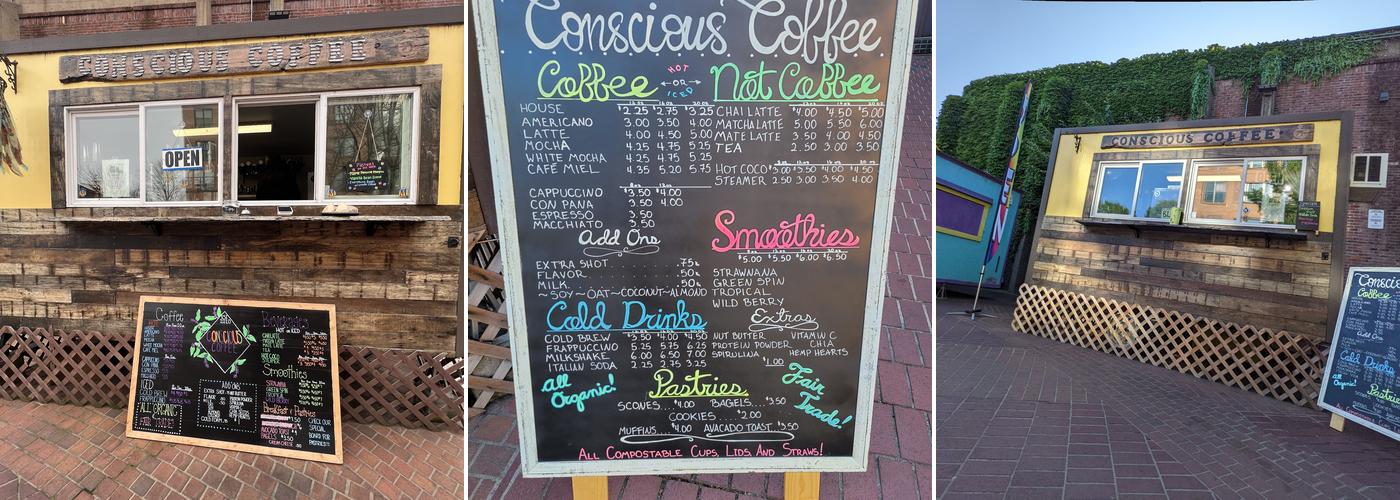 CONSCIOUS COFFEE
OPEN
Coffee
Beverages
CONSCIOUS
COFFEE
Smoothies
ICED
COLD BREW
FRAPPUCCINO
ADD ONS
ALL ORGANIC
FAIR TRADE
Breakfast & Pastries
AVOCADO TOAST
BAGELS
CHECK OUR
SPECIAL
BOARD FOR
Conscious Coffee
Coffee HOT OR ICED Not Coffee
HOUSE $2.25 $2.75 $3.25 CHAI LATTE $4.00 $4.50 $5.00
AMERICANO 3.00 3.50 4.00 MATCHA LATTE 5.00 5.50 6.00
LATTE 4.00 4.50 5.00 MATE LATTE 3.50 4.00 4.50
MOCHA 4.25 4.75 5.25 TEA 2.50 3.00 3.50
WHITE MOCHA 4.25 4.75 5.25
CAFÉ MIEL 4.35 5.20 5.75 HOT COCO $3.00 $3.50 $4.00 $4.50
STEAMER 2.50 3.00 3.50 4.00
CAPPUCCINO $3.50 $4.00
CON PANA 3.50 4.00
ESPRESSO 3.50
MACCHIATO 3.50
Smoothies
$5.00 $5.50 $6.00 $6.50
Add Ons
EXTRA SHOT .75¢
FLAVOR .50¢
MILK .50¢
~SOY~OAT~COCONUT~ALMOND
STRAWNANA
GREEN SPIN
TROPICAL
WILD BERRY
Cold Drinks
COLD BREW $3.50 $4.00 $4.50
FRAPPUCCINO 5.25 5.75 6.25
MILKSHAKE 6.00 6.50 7.00
ITALIAN SODA 2.25 2.75 3.25
Extras
NUT BUTTER VITAMIN C
PROTEIN POWDER CHIA
SPIRULINA HEMP HEARTS
$1.00
All Organic!
Pastries
Fair Trade!
SCONES...$4.00 BAGELS...$3.50
COOKIES...$2.00
MUFFINS...$4.00 AVACADO TOAST...$3.50
ALL COMPOSTABLE CUPS, LIDS, AND STRAWS!
CONSCIOUS COFFEE
Conscio
Coffee
Cold Drinks
All Organic!
Pastrie